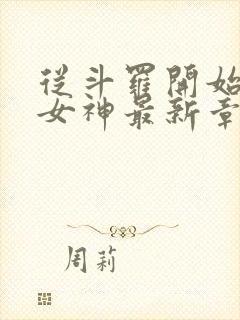 從斗羅開始
女神最新章
周莉